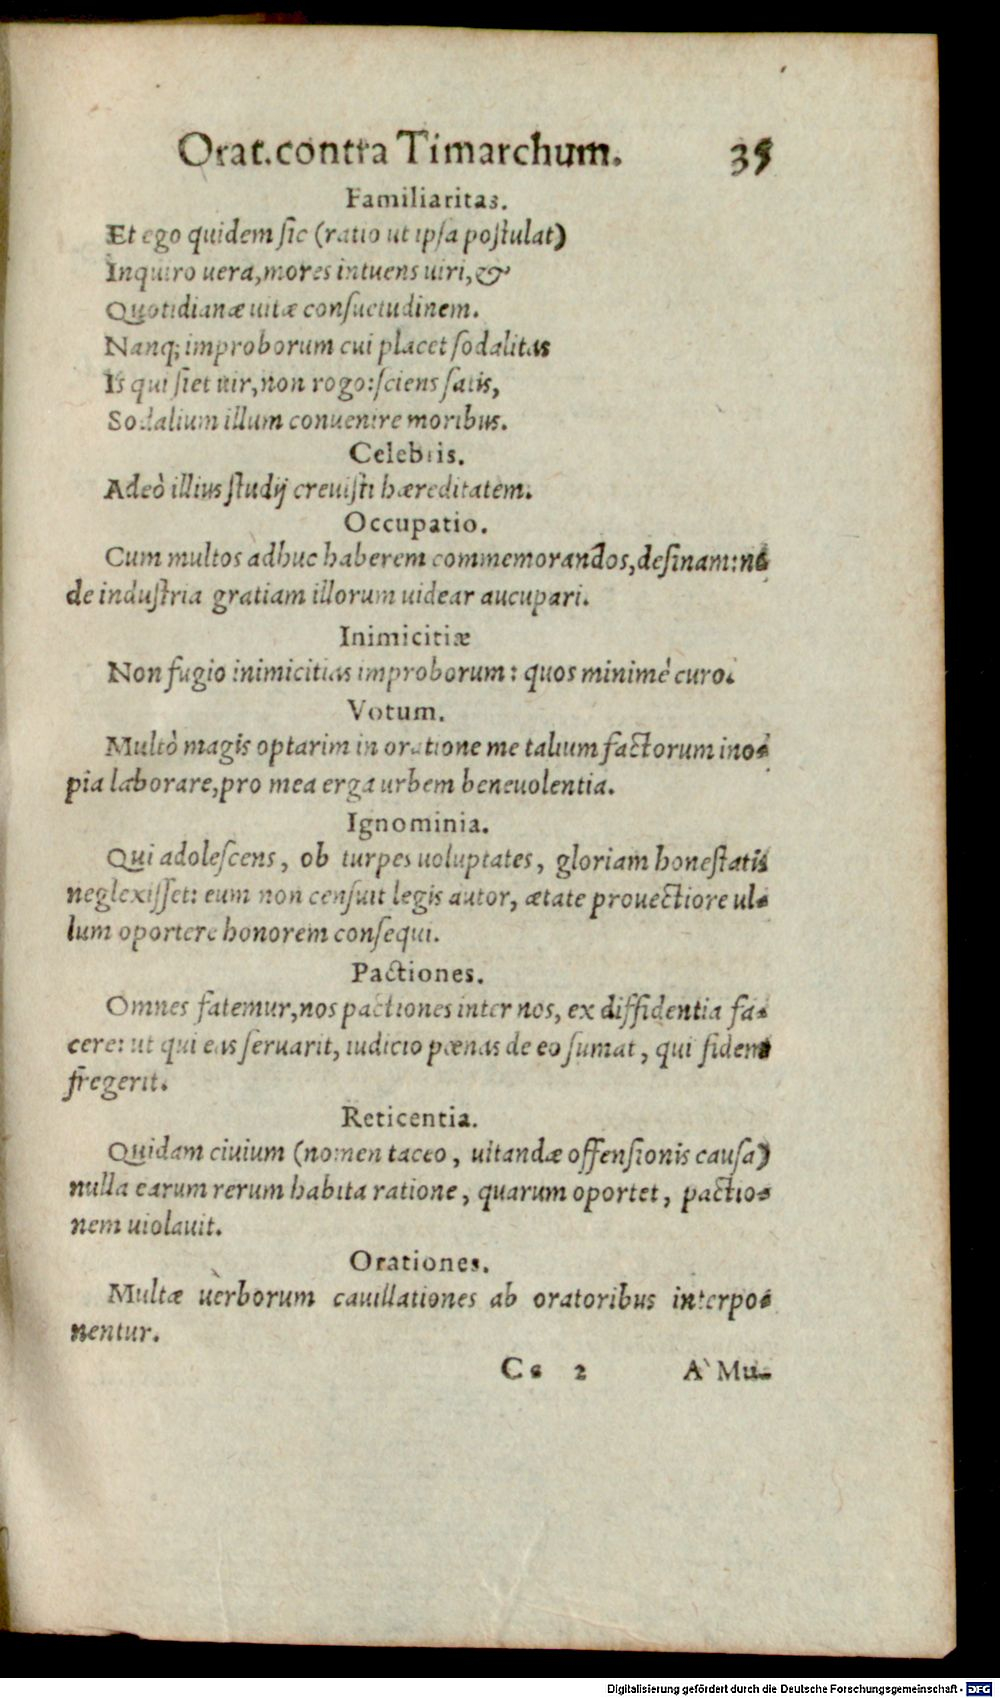 Orat. contra Timarchum. 35
Familiaritas.
Et ego quidem ſic (ratio ut ipſa poſtulat)
Inquiro uera, mores intuens uiri, &
Quotidianæ uitæ conſuetudinem.
Nanq; improborum cui placet ſodalitas
Is qui ſiet uir, non rogo: ſciens ſatis,
Sodalium illum conuenire moribus.
Celebris.
Adeò illius ſtudij creuiſti hæreditatem.
Occupatio.
Cum multos adhuc haberem commemorandos, deſinam: ne
de induſtria gratiam illorum uidear aucupari.
Inimicitiæ
Non fugio inimicitias improborum: quos minimè curo.
Votum.
Multò magis optarim in oratione me talium factorum ino-
pia laborare, pro mea erga urbem beneuolentia.
Ignominia.
Qui adoleſcens, ob turpes uoluptates, gloriam honeſtatis
neglexiſſet: eum non cenſuit legis autor, ætate prouectiore ul-
lum oportere honorem conſequi.
Pactiones.
Omnes fatemur, nos pactiones inter nos, ex diffidentia fa-
cere: ut qui eas ſeruarit, iudicio pœnas de eo ſumat, qui fidem
fregerit.
Reticentia.
Quidam ciuium (nomen taceo, uitandæ offenſionis cauſa)
nulla earum rerum habita ratione, quarum oportet, pactio-
nem uiolauit.
Orationes.
Multæ uerborum cauillationes ab oratoribus interpo-
nentur.
Cc 2 A` Mu-
Digitalisierung gefördert durch die Deutsche Forschungsgemeinschaft - DFG